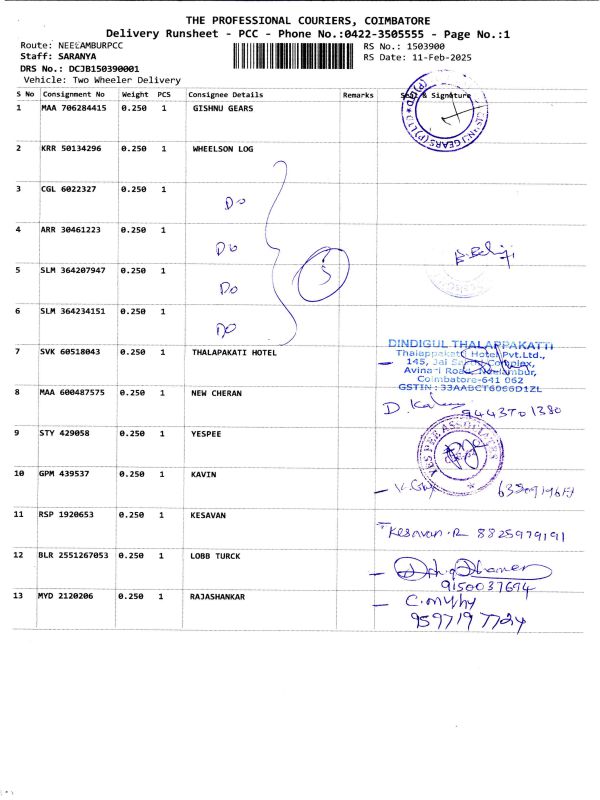 THE PROFESSIONAL COURIERS, COIMBATORE
Delivery Runsheet - PCC - Phone No.:0422-3505555 - Page No.:1
Route: NEELAMBURPCC
RS No.: 1503900
Staff: SARANYA
RS Date: 11-Feb-2025
DRS No.: DCJB150390001
Vehicle: Two Wheeler Delivery
S No Consignment No Weight PCS Consignee Details Remarks Seal & Signature
1 MAA 706284415 0.250 1 GISHNU GEARS
2 KRR 50134296 0.250 1 WHEELSON LOG
3 CGL 6022327 0.250 1 Do
4 ARR 30461223 0.250 1 Do
5 SLM 364207947 0.250 1 Do
5
6 SLM 364234151 0.250 1 Do
7 SVK 60518043 0.250 1 THALAPAKATI HOTEL
DINDIGUL THALAPPAKATTI
Thalappakatti Hotel Pvt.Ltd.,
145, Jai Complex,
Avinashi Road, Neelambur,
Coimbatore-641 062
GSTIN : 33AABCT6066D1ZL
8 MAA 600487575 0.250 1 NEW CHERAN
9443701380
9 STY 429058 0.250 1 YESPEE
YES PEE ASSOCIATES
10 GPM 439537 0.250 1 KAVIN
11 RSP 1920653 0.250 1 KESAVAN
Kesavan.R 8825979191
12 BLR 2551267053 0.250 1 LOBB TURCK
9150037694
13 MYD 2120206 0.250 1 RAJASHANKAR
9597197724